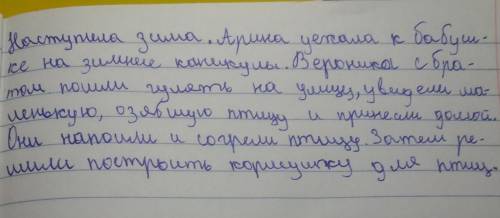 Наступила зима. Арина уехала к бабуш-
ке на зимние каникулы. Вероника с бра-
том пошли гулять на улицу, увидели ма-
ленькую, озябшую птицу и принесли домой.
Они напоили и согрели птицу. Затем ре-
шили построить кормушку для птиц.